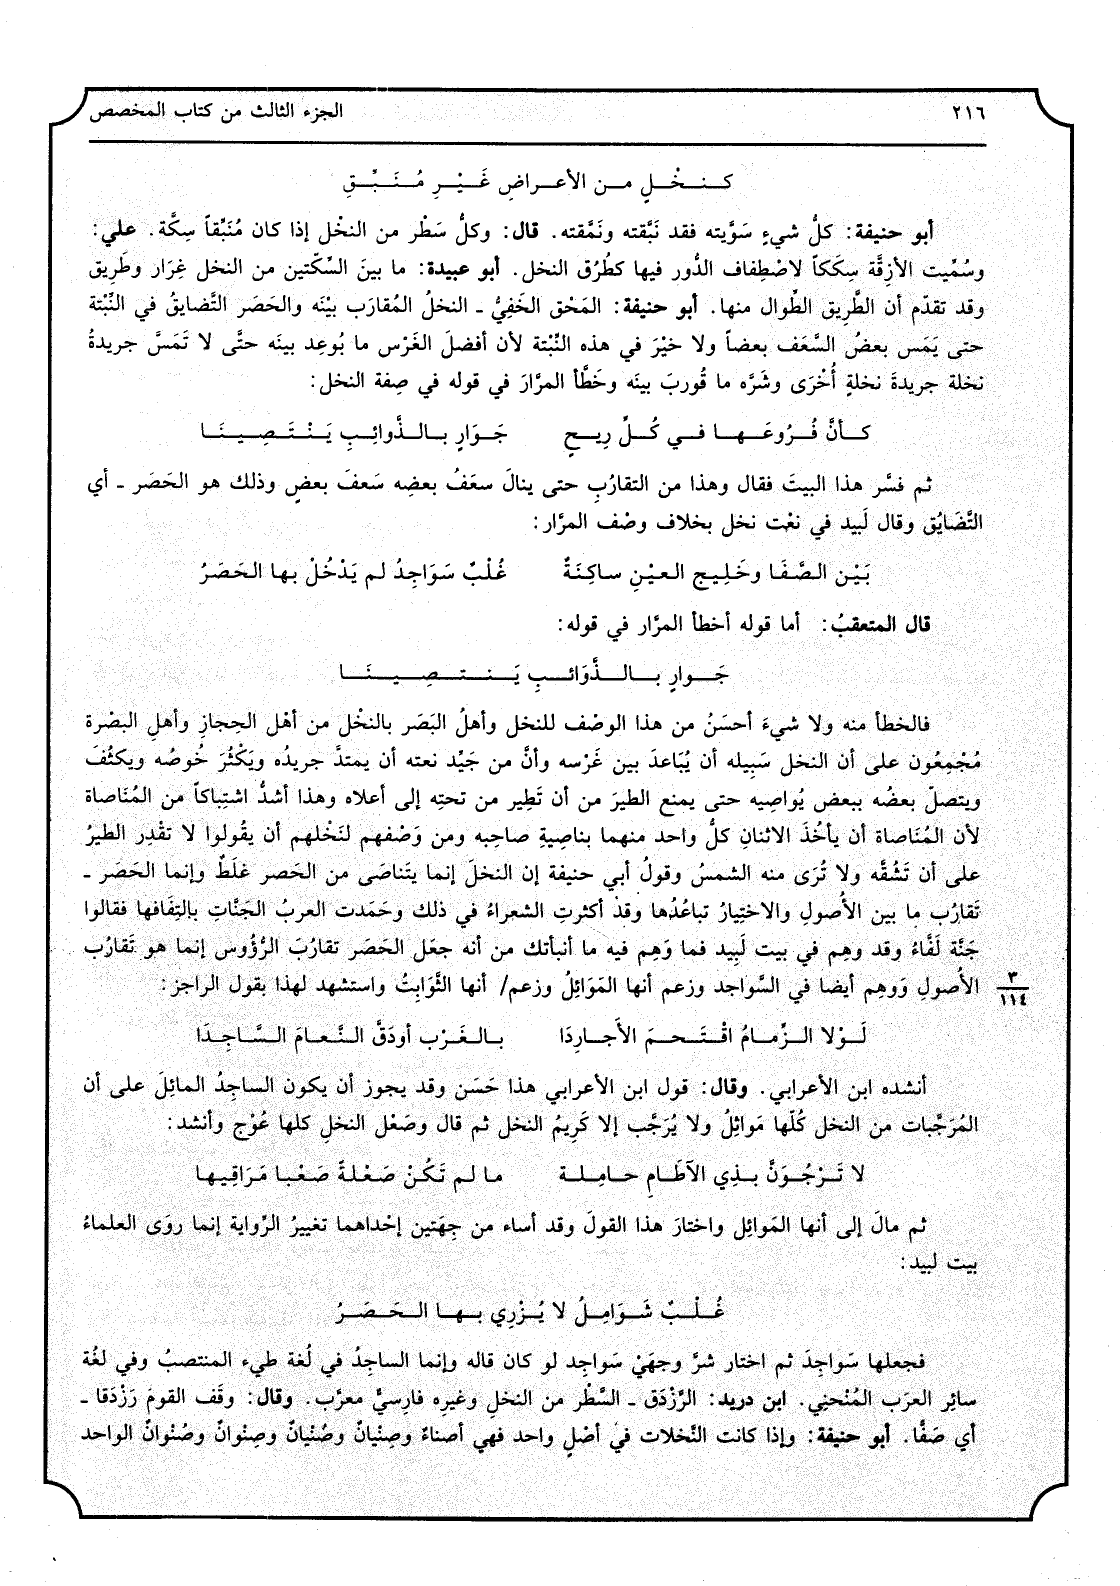 ٢١٦ الجزء الثالث من كتاب المخصص
كنخْلٍ من الأعراضِ غَيْرِ مُنَبِّقِ
أبو حنيفة: كلُّ شيءٍ سَوَّيته فقد نَبَّقته ونَمَّقته. قال: وكلُّ سَطْر من النخْل إذا كان مُنَبِّقاً سِكَّة. علي:
وسُمِّيت الأزِقَّة سِكَكاً لاصْطِفاف الدُّور فيها كطُرُق النخل. أبو عبيدة: ما بينَ السِّكّتين من النخل غِرَار وطَرِيق
وقد تقدّم أن الطَّرِيق الطِّوال منها. أبو حنيفة: المَحْق الخَفِيُّ ـ النخلُ المُقارَب بيْنَه والحَصَر التَّضايقُ في النَّبْتة
حتى يَمَس بعضُ السَّعَف بعضاً ولا خيْرَ في هذه النَّبْتة لأن أفضلَ الغَرْس ما بُوعِد بينَه حتَّى لا تَمَسَّ جريدةُ
نخلة جريدةَ نخلةٍ أُخْرَى وشَرَّه ما قُورِبَ بينَه وخَطَّأ المرَّارَ في قوله في صِفة النخل:
كأنَّ فُرُوعَها في كُلِّ رِيحٍ جَوَارٍ بالذَّوائِبِ يَنْتَصِينَا
ثم فسَّر هذا البيتَ فقال وهذا من التقارُبِ حتى ينالَ سعَفُ بعضِه سَعفَ بعضٍ وذلك هو الحَصَر ـ أي
التَّضَايُق وقال لَبيد في نعْت نخل بخلاف وصْف المرَّار:
بَيْن الصَّفَا وخَلِيج العيْنِ ساكِنَةٌ غُلْبٌ سَوَاجِدُ لم يَدْخُلْ بها الحَصَرُ
قال المتعقبُ: أما قوله أخطأ المرَّار في قوله:
جَوارٍ بالذَّوَائبِ يَنتصِينَا
فالخطأ منه ولا شيءَ أحسَنُ من هذا الوصْف للنخل وأهلُ البَصَر بالنخْل من أهْل الحِجازِ وأهلِ البصْرة
مُجْمِعُون على أن النخل سَبِيله أن يُبَاعدَ بين غَرْسه وأنَّ من جَيِّد نعته أن يمتدَّ جريدُه ويَكْثُرَ خُوصُه ويكثُفَ
ويتصلّ بعضُه ببعض يُواصِيه حتى يمنع الطيرَ من أن تَطِير من تحتِه إلى أعلاه وهذا أشدُّ اشتِباكاً من المُنَاصاة
لأن المُنَاصاة أن يأخُذَ الاثنانِ كلُّ واحد منهما بناصِيةِ صاحبِه ومن وَصْفهم لنَخْلهم أن يقُولوا لا تقْدِر الطيرُ
على أن تَشُقَّه ولا تُرَى منه الشمسُ وقولُ أبي حنيفة إن النخلَ إنما يتَناصَى من الحَصر غلَطٌ وإنما الحَصَر ـ
تَقارُب ما بين الأُصولِ والاخْتِيارُ تباعُدُها وقدْ أكثرتِ الشعراءُ في ذلك وحَمَدت العربُ الجَنَّاتِ بالتِفَافها فقالوا
جَنَّة لَفَّاءُ وقد وهِم في بيت لَبِيد فما وَهِم فيه ما أنبأتك من أنه جعَل الحَصَر تقارُبَ الرُّؤُوس إنما هو تَقارُب
الأُصولِ وَوهِم أيضا في السَّواجد وزعم أنها المَوَائِلُ وزعم/ أنها الثَّوَابِتُ واستشهد لهذا بقول الراجز:
٣
١١٤
لَوْلا الزِّمَامُ اقْتَحَمَ الأَجارِدَا بالغَرْب أودَقَّ النَّعامَ السَّاجِدَا
أنشده ابن الأعرابي. وقال: قول ابن الأعرابي هذا حَسَن وقد يجوز أن يكون الساجِدُ المائلَ على أن
المُرَجَّبات من النخل كُلّها مَوائِلُ ولا يُرَجَّب إلا كَرِيمُ النخل ثم قال وصَعْل النخلِ كلها عُوْج وأنشد:
لا تَرْجُوَنَّ بذِي الآطَامِ حامِلة ما لم تَكُنْ صَعْلةً صَعْبا مَرَاقِيها
ثم مالَ إلى أنها المَوائِل واختارَ هذا القولَ وقد أساء من جِهَتين إحْداهما تغييرُ الرِّواية إنما روَى العلماءُ
بيت لبيد:
غُلْبٌ شَوَامِلُ لا يُزْرِي بها الحَصَرُ
فجعلها سَواجِدَ ثم اختار شرَّ وجهَيْ سَواجِد لو كان قاله وإنما الساجِدُ في لُغة طيء المنتصبُ وفي لغُة
سائِر العرَب المُنْحنِي. ابن دريد: الرَّزْدَق ـ السَّطْر من النخلِ وغيرِه فارِسيٌّ معرَّب. وقال: وقَف القومُ رَزْدَقا ـ
أي صَفًّا. أبو حنيفة: وإذا كانت النَّخلات في أصْلٍ واحد فهي أصناءٌ وصِنْيانٌ وصُنْيانٌ وصِنْوانٌ وصُنْوانٌ الواحد